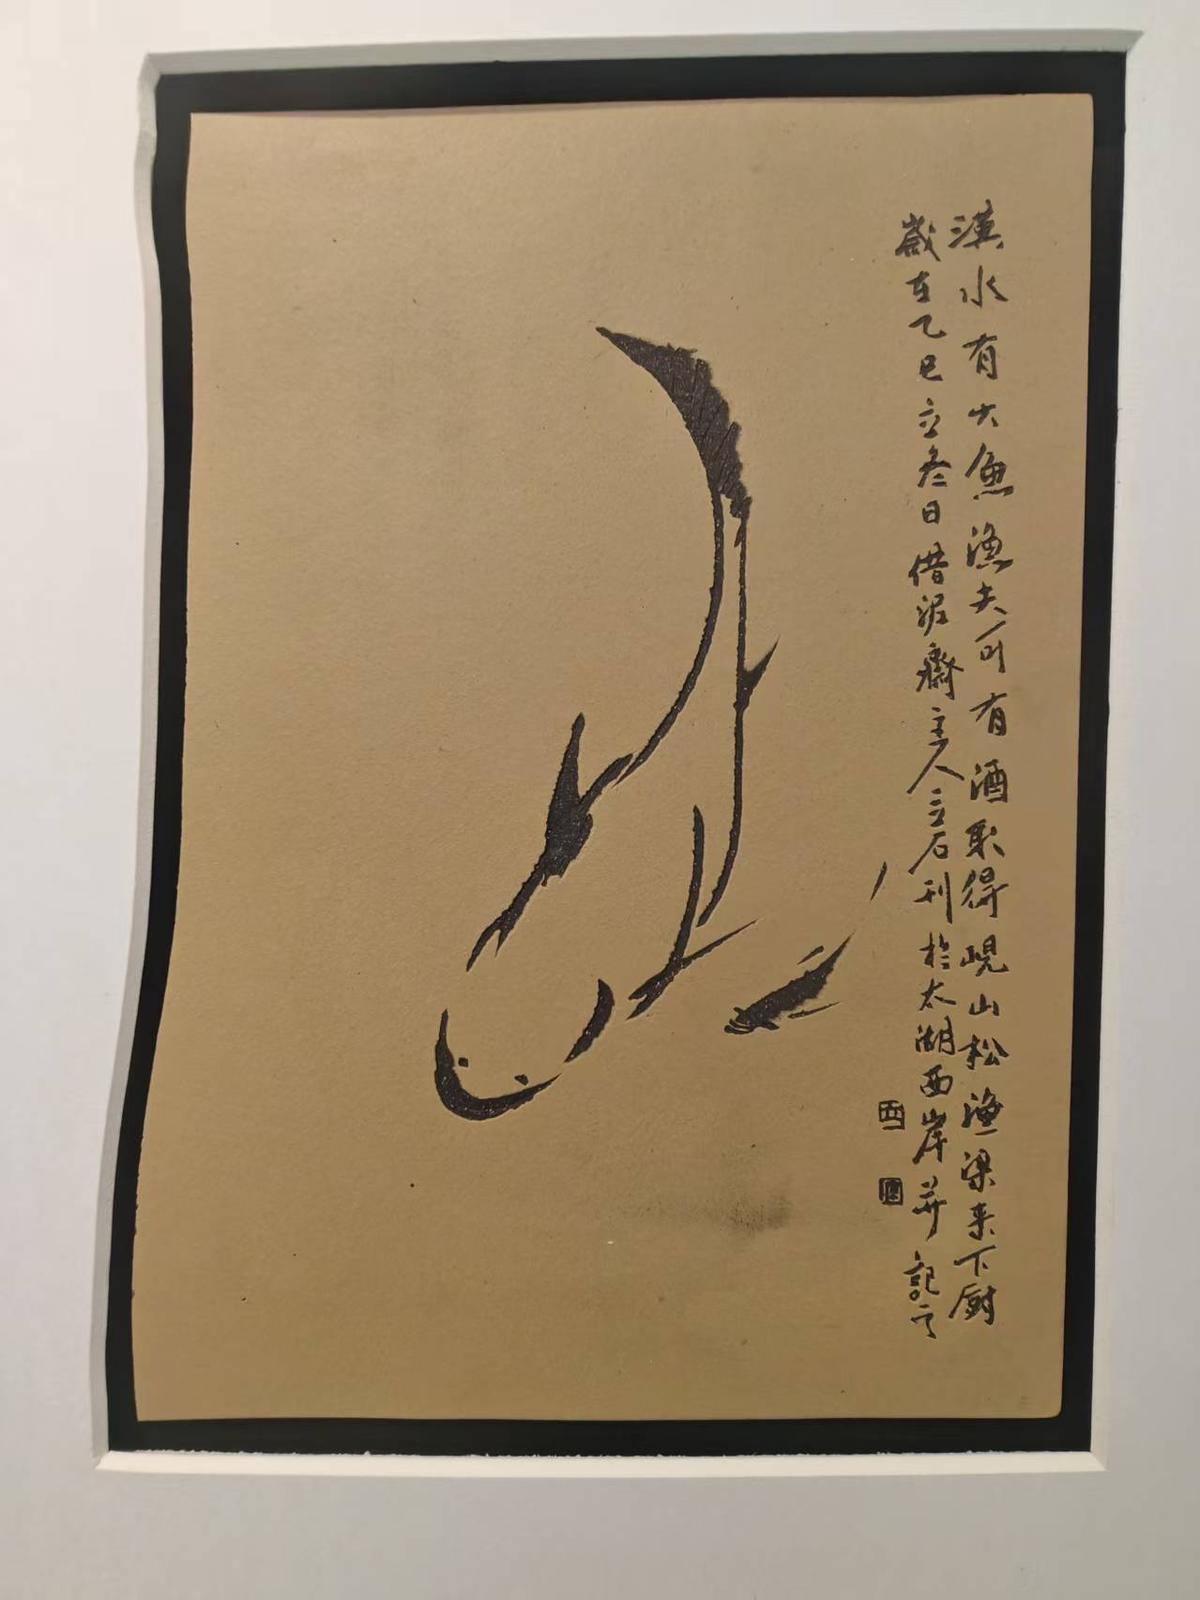 漢水有大魚漁夫可有酒取得峴山松漁梁来下厨
歲在乙巳立冬日借泥齋主人立石刊於太湖西岸并記之